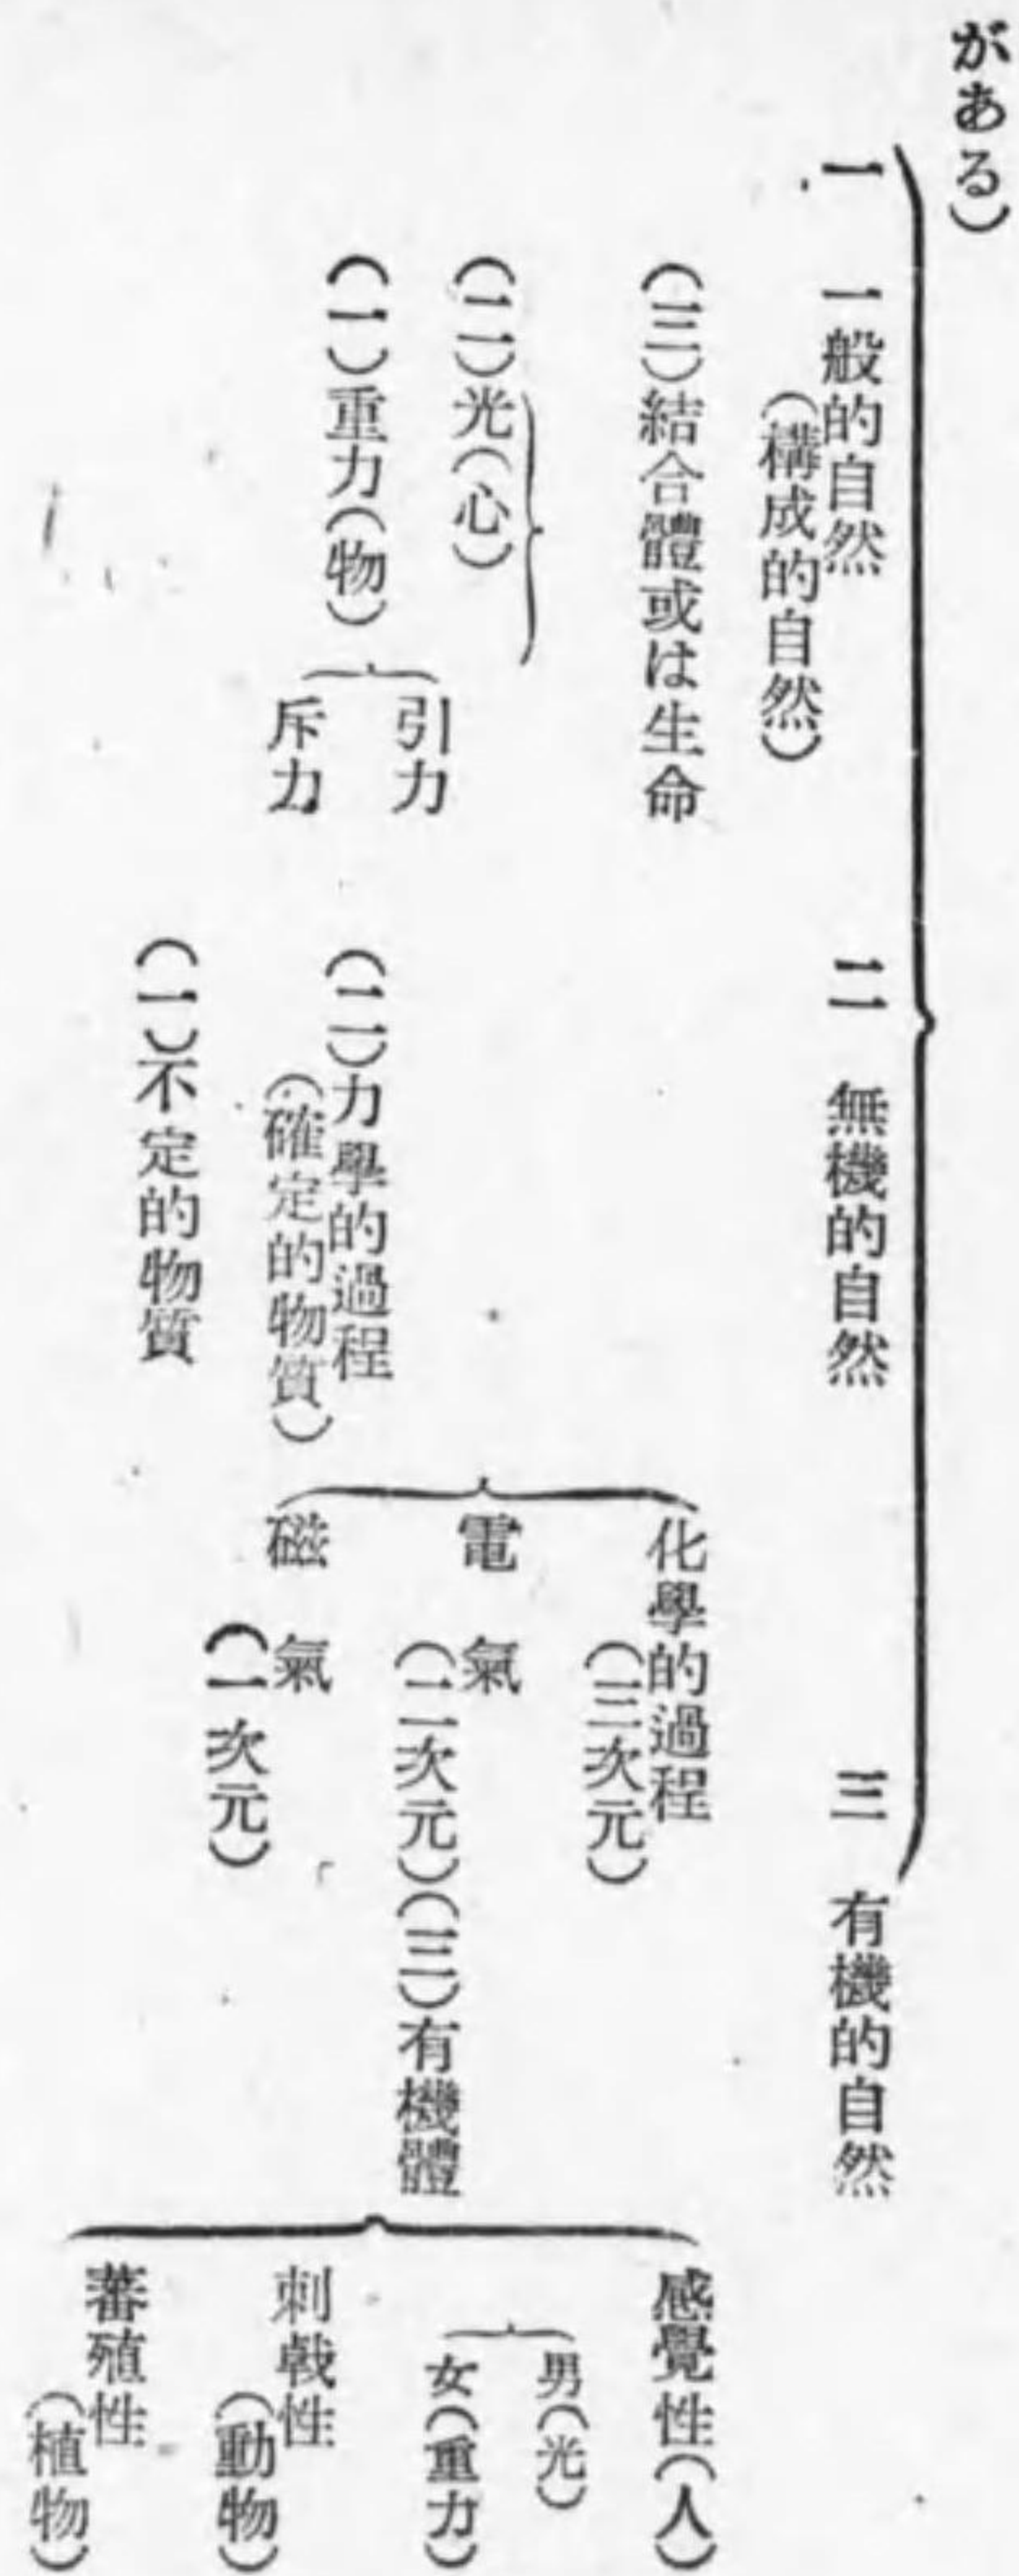 がある)
一　一般的自然
(構成的自然)
(三)結合體或は生命
(二)光(心)
(一)重力(物)
引力
斥力
二　無機的自然
(二)力學的過程
(確定的物質)
(一)不定的物質
化學的過程
(三次元)
電氣
(二次元)
磁氣
(一次元)
三　有機的自然
(三)有機體
感覺性(人)
男(光)
女(重力)
刺戟性
(動物)
蕃殖性
(植物)